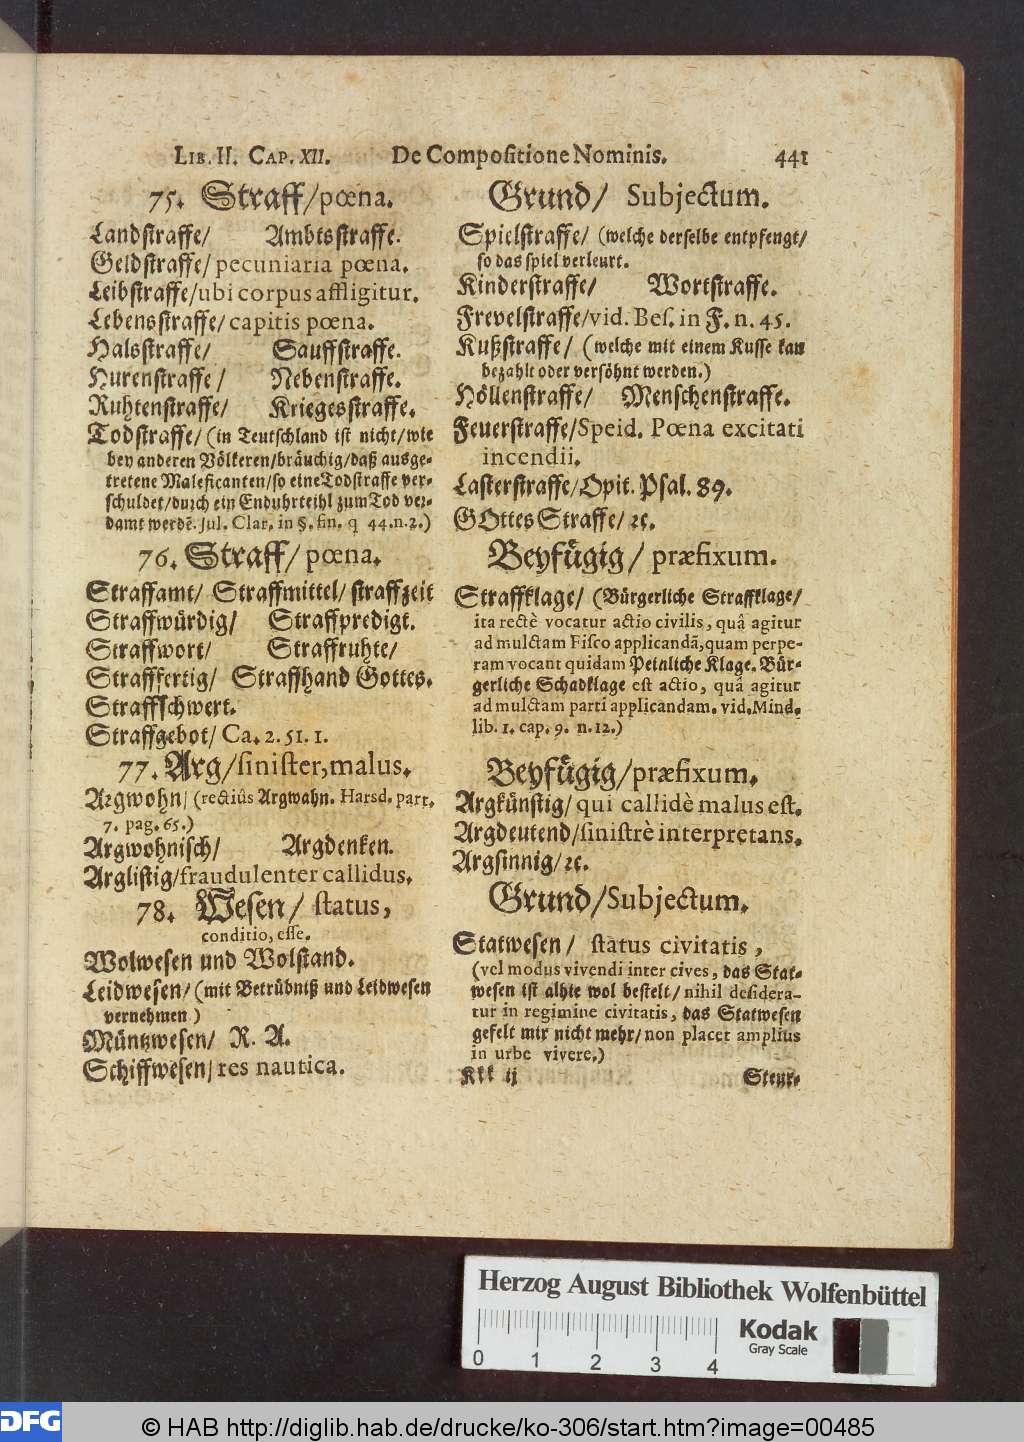 LIB. II. CAP. XII. De Compositione Nominis. 441
75. Straff/pœna.
Landstraffe/ Ambtsstraffe.
Geldstraffe/pecuniaria pœna.
Leibstraffe/ubi corpus affligitur.
Lebensstraffe/capitis pœna.
Halsstraffe/ Sauffstraffe.
Hurenstraffe/ Nebenstraffe.
Ruhtenstraffe/ Kriegesstraffe.
Todstraffe/(in Teutschland ist nicht/wie
bey anderen Völkeren/bräuchig/daß ausge-
tretene Maleficanten/so eine Todstraffe ver-
schuldet/durch ein Enduhrteihl zum Tod ver-
damt werdē. Jul. Clar. in §. fin. q 44.n.2.)
76. Straff/pœna.
Straffamt/ Straffmittel/ straffzeit
Straffwürdig/ Straffpredigt.
Straffwort/ Straffruhte/
Strafffertig/ Straffhand Gottes.
Straffschwert.
Straffgebot/ Ca. 2. 51. 1.
77. Arg/sinister,malus.
Argwohn/(rectiùs Argwahn. Harsd. part.
7. pag. 65.)
Argwohnisch/ Argdenken.
Arglistig/fraudulenter callidus.
78. Wesen/ status,
conditio, esse.
Wolwesen und Wolstand.
Leidwesen/(mit Betrübniß und Leidwesen
vernehmen)
Müntzwesen/ R. A.
Schiffwesen/res nautica.
Grund/ Subjectum.
Spielstraffe/ (welche derselbe entpfengt/
so das spiel verleurt.
Kinderstraffe/ Wortstraffe.
Frevelstraffe/vid. Bes. in F. n. 45.
Kußstraffe/ (welche mit einem Kusse kan
bezahlt oder versöhnt werden.)
Höllenstraffe/ Menschenstraffe.
Feuerstraffe/Speid. Pœna excitati
incendii.
Lasterstraffe/Opit. Psal. 89.
GOttes Straffe/ ꝛc.
Beyfügig/ præfixum.
Straffklage/ (Bürgerliche Straffklage/
ita rectè vocatur actio civilis, quâ agitur
ad mulctam Fisco applicandā,quam perpe-
ram vocant quidam Peinliche Klage. Bür-
gerliche Schadklage est actio, quâ agitur
ad mulctam parti applicandam. vid. Mind.
lib. 1. cap. 9. n. 12.)
Beyfügig/præfixum.
Argkünstig/ qui callidè malus est.
Argdeutend/sinistrè interpretans.
Argsinnig/ꝛc.
Grund/Subjectum.
Statwesen/ status civitatis,
(vel modus vivendi inter cives, das Stat-
wesen ist alhie wol bestelt/ nihil desidera-
tur in regimine civitatis, das Statwesen
gefelt mir nicht mehr/ non placet amplius
in urbe vivere.)
Kkk ij Steur-
Herzog August Bibliothek Wolfenbüttel
0 1 2 3 4
Kodak
Gray Scale
DFG
© HAB http://diglib.hab.de/drucke/ko-306/start.htm?image=00485